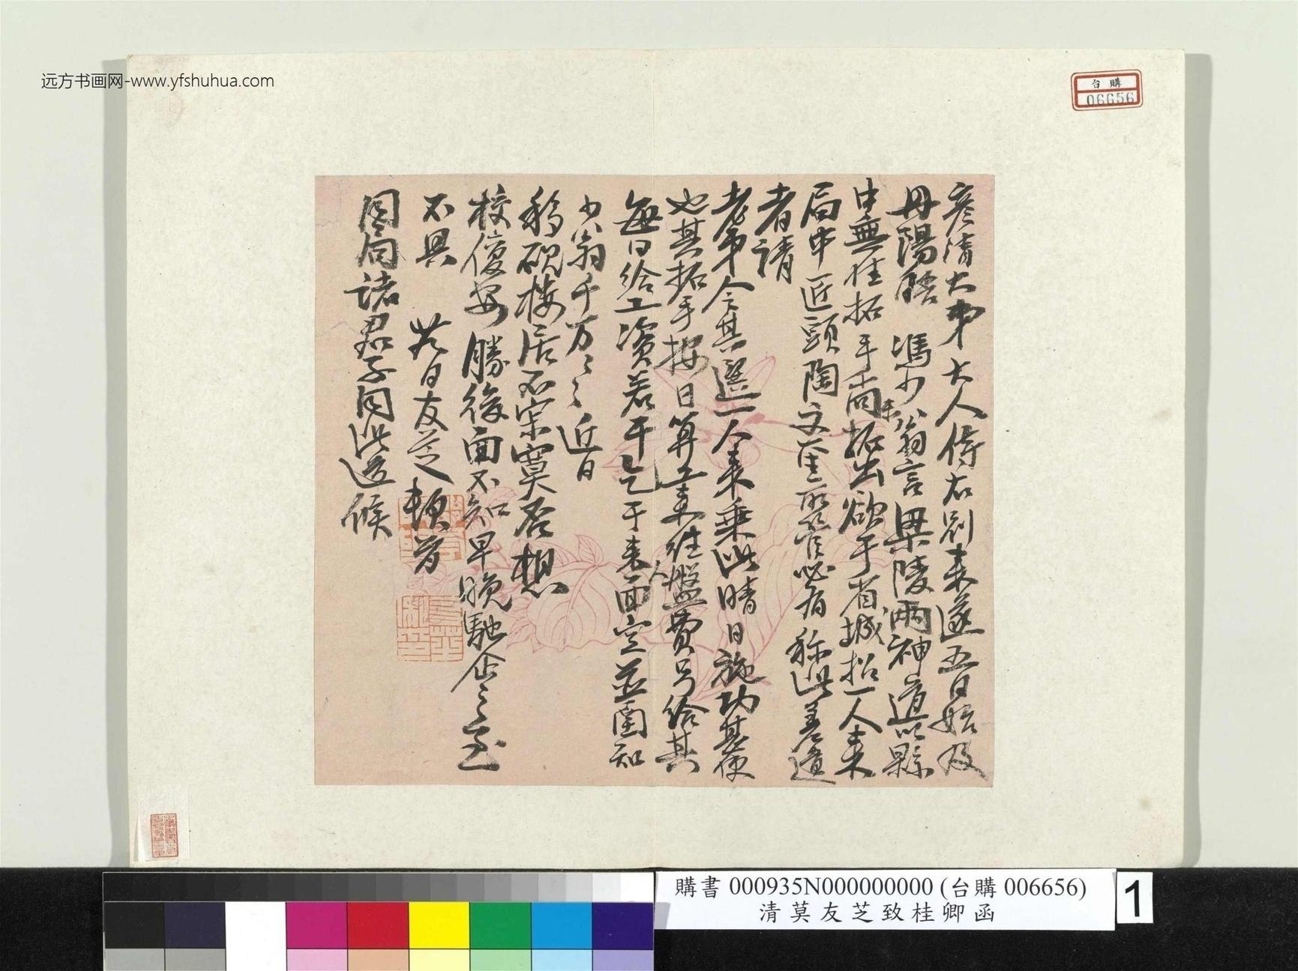 远方书画网-www.yfshuhua.com
台購
06656
彥清大弟大人侍右别來遂五日始及
丹陽晤 馮少翁言梁陵兩神道以縣
中無佳拓手尚未拓出欲于省城招一人來
局中 近頭陶文 必有 稱此善道
者請
老弟令其選一人來乘此晴日施功甚便
也其拓手按日算工來往盤費另給其
每日給工資若干乞于來面定並圖知
少翁千万〻〻近日
移硯樓居不寂寞否想
校復安勝後面不知早晚馳企〻〻至
不具 廿日友芝頓首
同局諸君子同此道候
購書 000935N000000000 (台購 006656)
清莫友芝致桂卿函
1